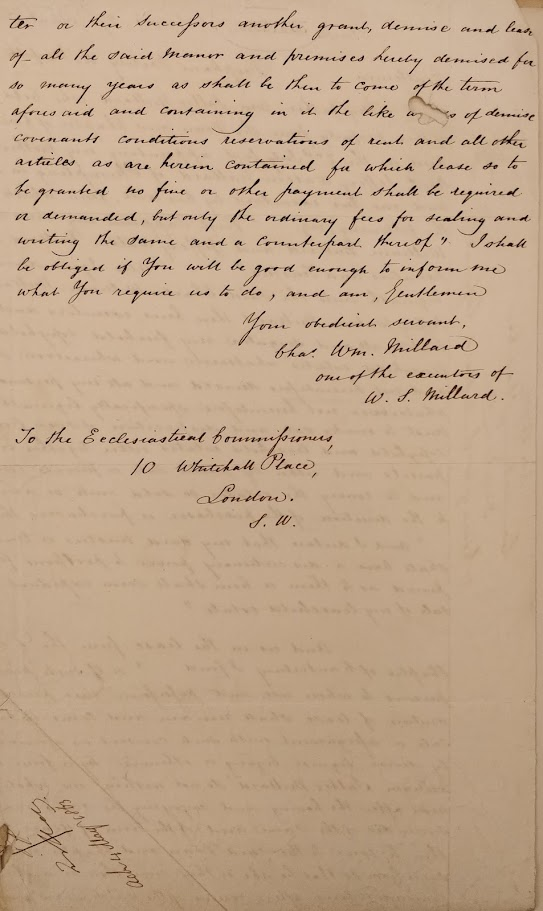 ter or their successors another grant, demise and lease
of all the said Manor and premises hereby demised for
so many years as shall be then to come of the term
aforesaid and containing in it the like of demise
covenants conditions reservations of rent and all other
articles as are herein contained for which lease so to
be granted no fine or other payment shall be required
or demanded, but only the ordinary fees for sealing and
writing the same and a Counterpart thereof" I shall
be obliged if You will be good enough to inform me
what You require us to do, and am, Gentlemen
Your obedient servant,
Chas. Wm. Millard
one of the executors of
W. S. Millard.
To the Ecclesiastical Commissioners,
10 Whitehall Place,
London.
S. W.
May